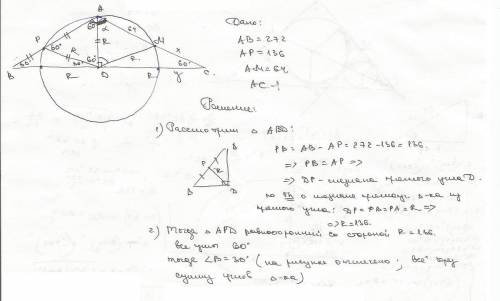 A
60°
α
64
P
60°
R
R
M
x
R
60
60°
30°
60°
B
R
D
R
y
C
Дано:
AB = 272
AP = 136
AM = 64
AC - ?
Решение:
1) Рассмотрим Δ ABD:
PB = AB - AP = 272 - 136 = 136.
=> PB = AP =>
=> DP - медиана прямого угла D.
по th о медиане прямоуг. Δ-ка из
прямого угла: DP = PB = PA = R =>
=> R = 136.
P
R
D
2) Тогда Δ APD равносторонний со стороной R = 136
все углы 60°
тогда ∠B = 30° (на рисунке отмечено; всё через
сумму углов Δ-ка)